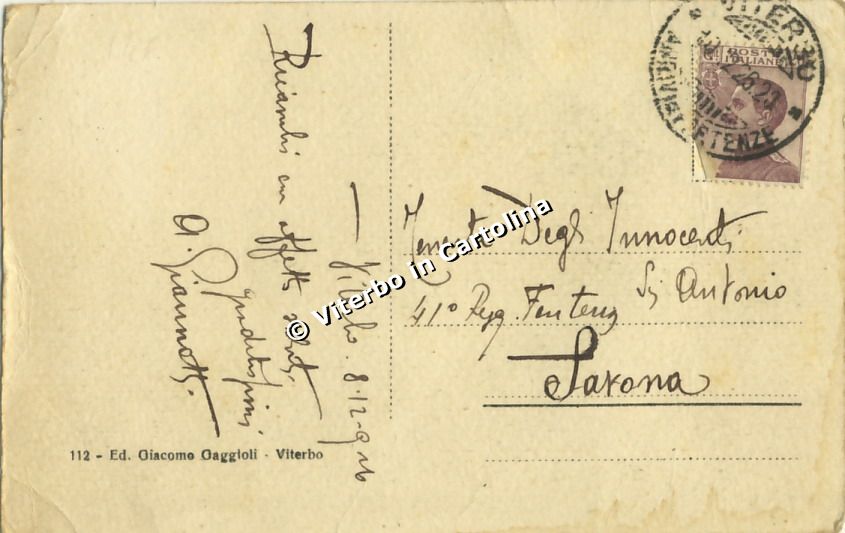 Ricambi con affetto saluti
graditissimi
A. Giannotti.
— Viterbo. 8.12.926
Tenente Degli Innocenti
Sig Antonio
41° Regg. Fanteria
Savona
112 - Ed. Giacomo Gaggioli - Viterbo
VITERBO
PARTENZE
POSTE
ITALIANE
© Viterbo in Cartolina